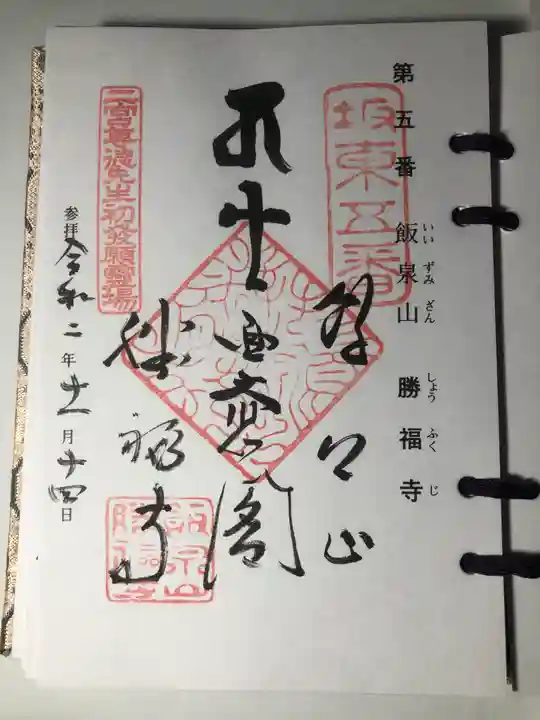 第五番 飯泉山 勝福寺
いいずみざん しょうふくじ
坂東五番
山
面大悲閣
勝福寺
飯泉山
勝福寺
二宮尊徳先生初發願霊場
参拝 令和二年十一月十四日